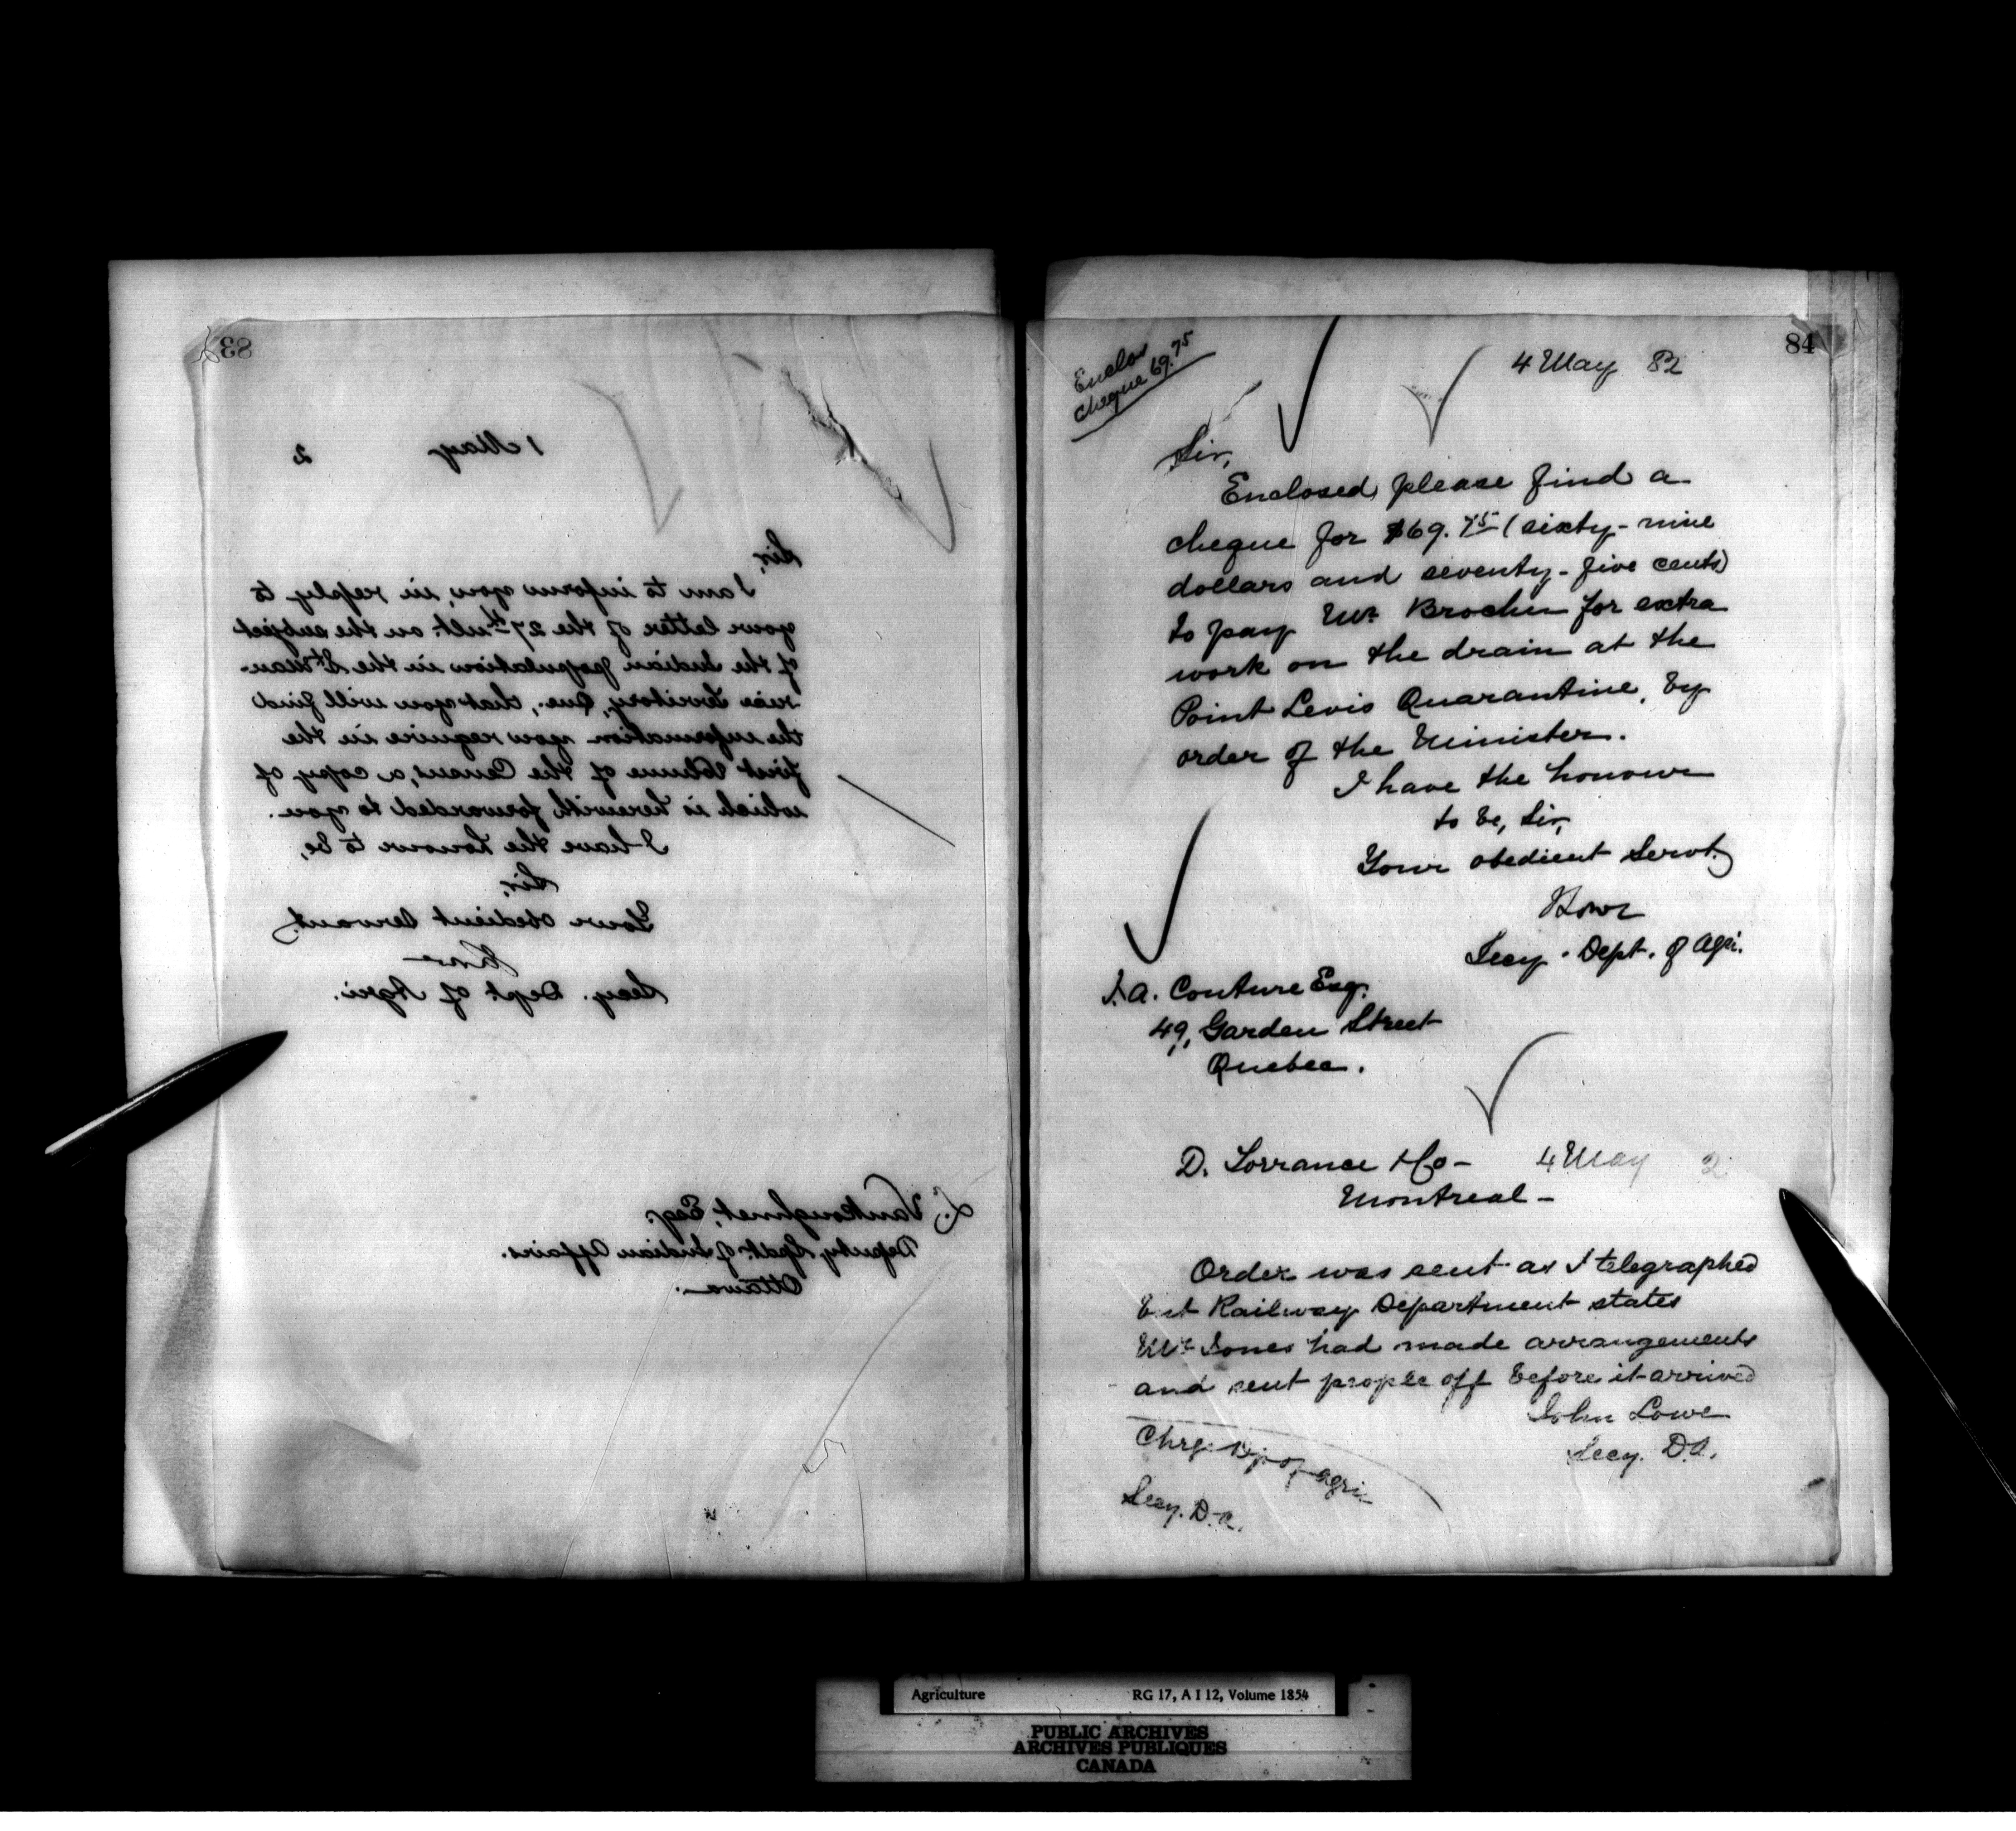 83
1 May 2
Sir,
I am to inform you, in reply to
your letter of the 27th ult. on the subject
of the Indian population in the St Mau-
rice Territory, Que., that you will find
the information you require in the
first Volume of the Census, a copy of
which is herewith forwarded to you.
I have the honour to be,
Sir,
Your obedient Servant,
Lowe
Secy. Dept of Agri.
L. VanKoughnet, Esq.
Deputy, Supdt. of Indian Affairs.
Ottawa.
84
Enclos
cheque 69.75
4 May 82
Sir,
Enclosed please find a
cheque for $69.75 (sixty-nine
dollars and seventy-five cents)
to pay Mr. Brochu for extra
work on the drain at the
Point Levis Quarantine, by
order of the Minister.
I have the honour
to be, Sir,
Your obedient Servt.
Lowe
Secy. Dept. of Agri.
J. A. Couture Esq.
49, Garden Street
Quebec.
D. Torrance & Co - 4 May 2
Montreal -
Order was sent as I telegraphed
but Railway Department states
Mr Jones had made arrangements
and sent people off before it arrived
John Lowe
Secy. D.A.
Chrg. Dp of Agri.
Secy. D. A.
Agriculture RG 17, A I 12, Volume 1854
PUBLIC ARCHIVES
ARCHIVES PUBLIQUES
CANADA